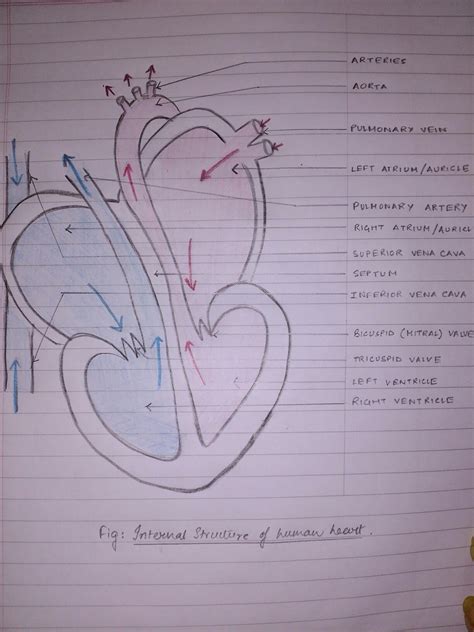 ARTERIES
AORTA
PULMONARY VEIN
LEFT ATRIUM/AURICLE
PULMONARY ARTERY
RIGHT ATRIUM/AURICL
SUPERIOR VENA CAVA
SEPTUM
INFERIOR VENA CAVA
BICUSPID (MITRAL) VALVE
TRICUSPID VALVE
LEFT VENTRICLE
RIGHT VENTRICLE
Fig: Internal Structure of human heart.